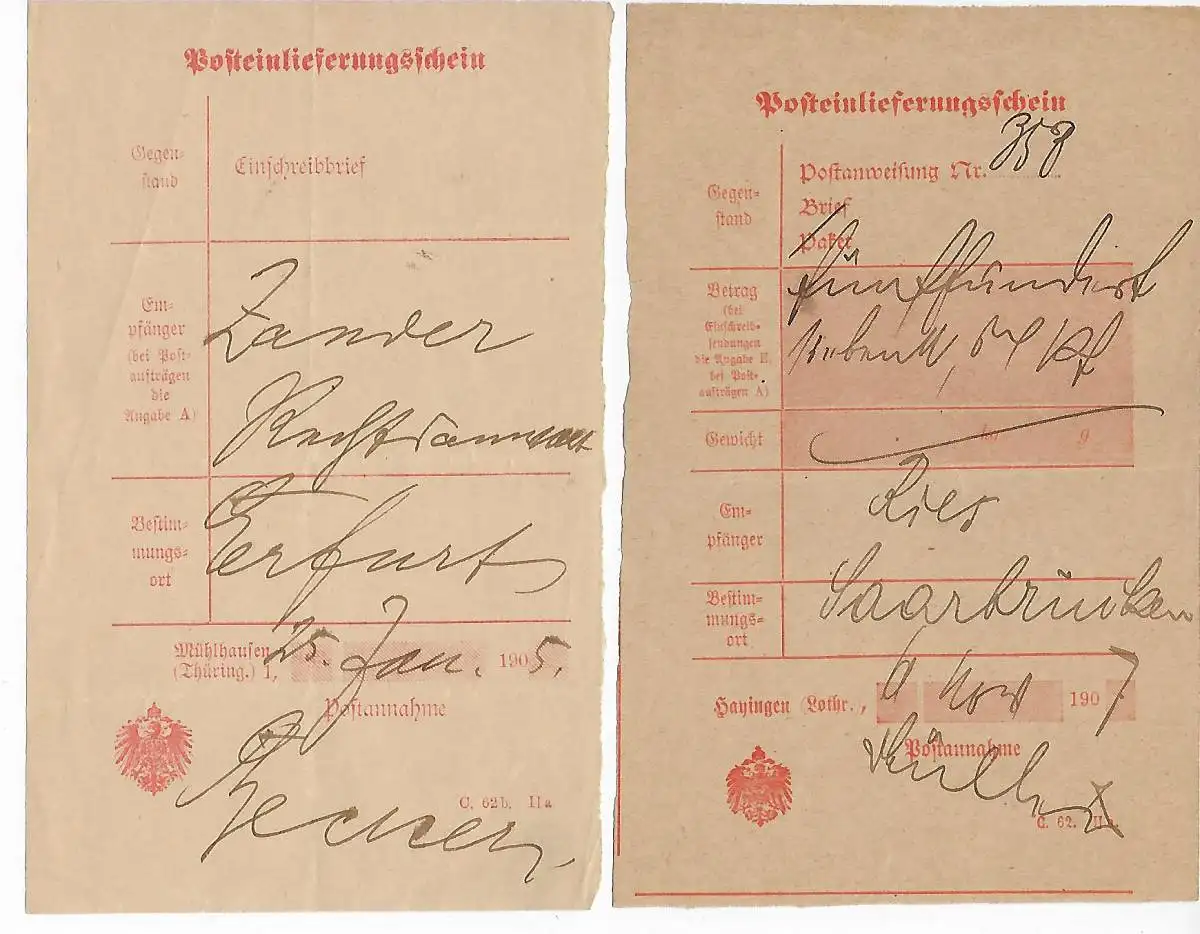 Posteinlieferungsschein
Gegen-
stand
Einschreibbrief
Em-
pfänger
(bei Post-
aufträgen
die
Angabe A)
Zander
Rechtsanwalt
Bestim-
mungs-
ort
Erfurt
Mühlhausen
(Thüring.) 1,
25. Jan. 1905.
Postannahme
C. 62b. IIa
Posteinlieferungsschein
Gegen-
stand
Postanweisung Nr. 358
Brief
Paket
Betrag
(bei
Einschreib-
sendungen
die Angabe E,
bei Post-
aufträgen A)
fünfhundert
sieben M, 54 Pf
Gewicht
kg g
Em-
pfänger
Ries
Bestim-
mungs-
ort
Saarbrücken
Hayingen (Lothr.,
Nov 1907
Postannahme
C. 62. IIa